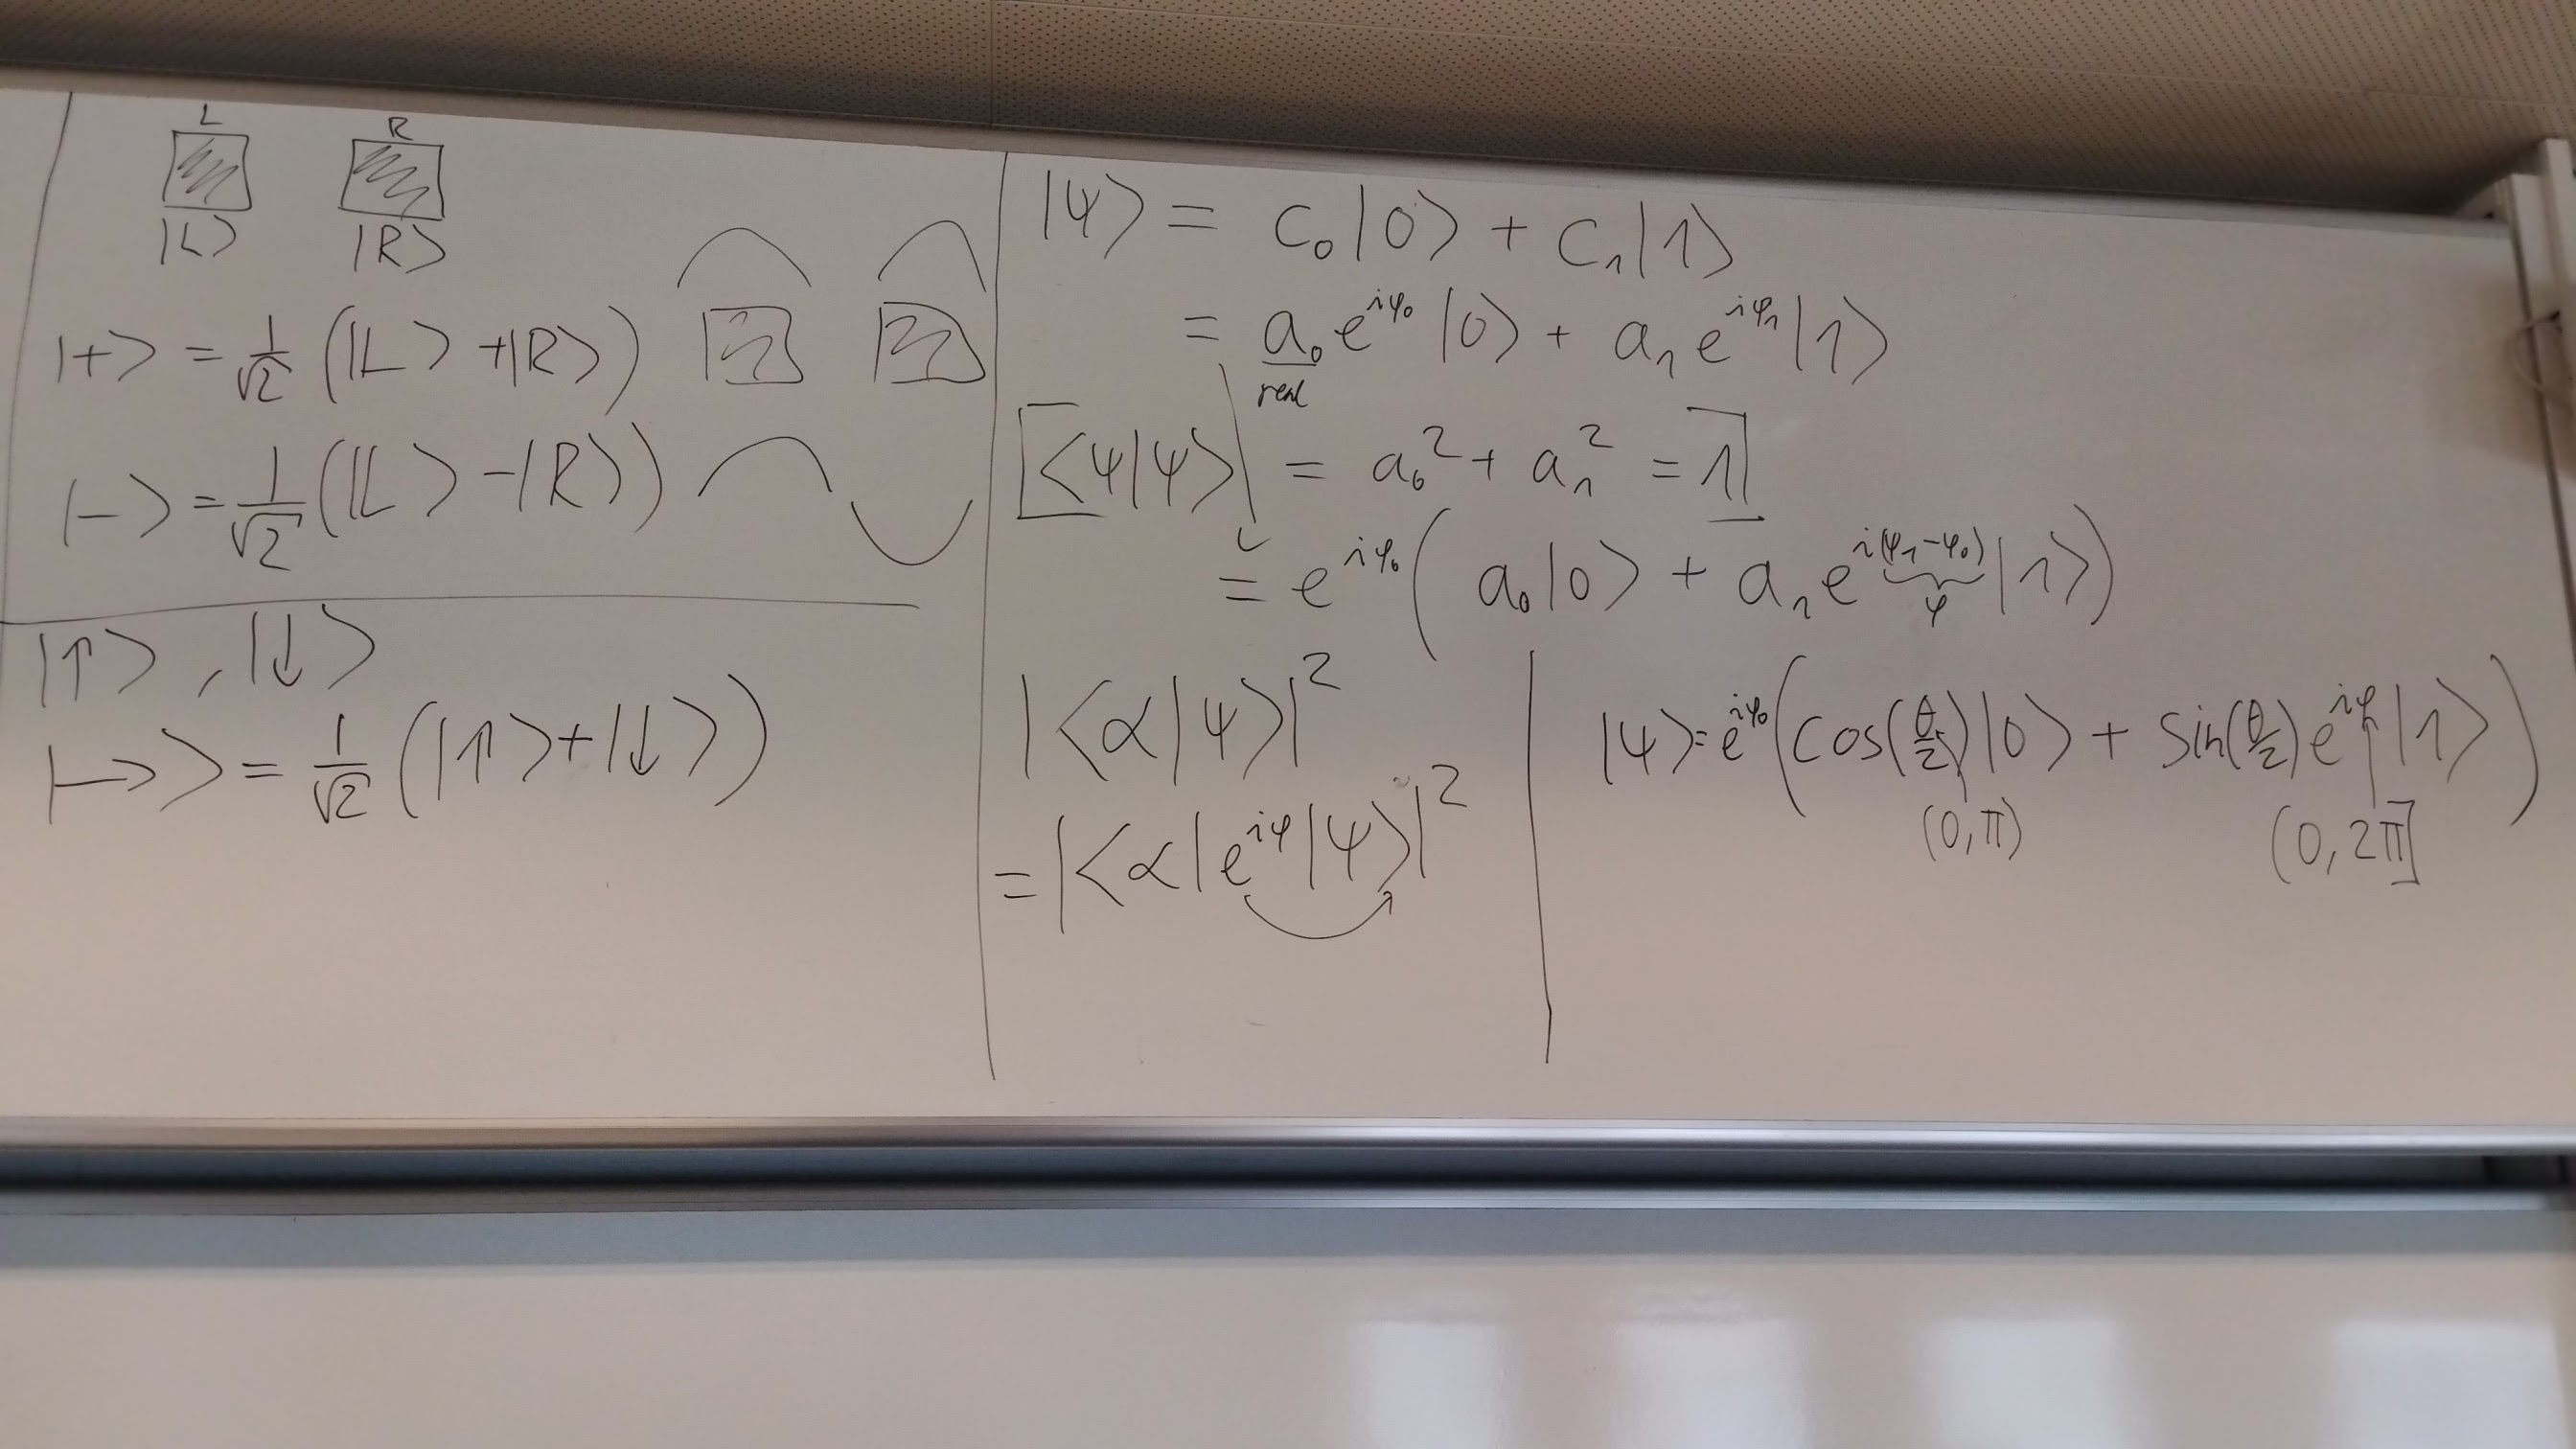 L R
|L⟩ |R⟩
|+⟩ = 1/√2 (|L⟩ + |R⟩)
|−⟩ = 1/√2 (|L⟩ − |R⟩)
|↑⟩ , |↓⟩
|→⟩ = 1/√2 (|↑⟩ + |↓⟩)
|ψ⟩ = c₀|0⟩ + c₁|1⟩
= a₀ e^{iφ₀} |0⟩ + a₁ e^{iφ₁} |1⟩
real
[⟨ψ|ψ⟩ = a₀² + a₁² = 1]
= e^{iφ₀} ( a₀|0⟩ + a₁ e^{i(φ₁−φ₀)} |1⟩ )
φ
|⟨α|ψ⟩|²
= |⟨α|e^{iφ}|ψ⟩|²
|ψ⟩ = e^{iφ₀} ( cos(θ/2) |0⟩ + sin(θ/2) e^{iφ} |1⟩ )
(0,π) (0,2π]